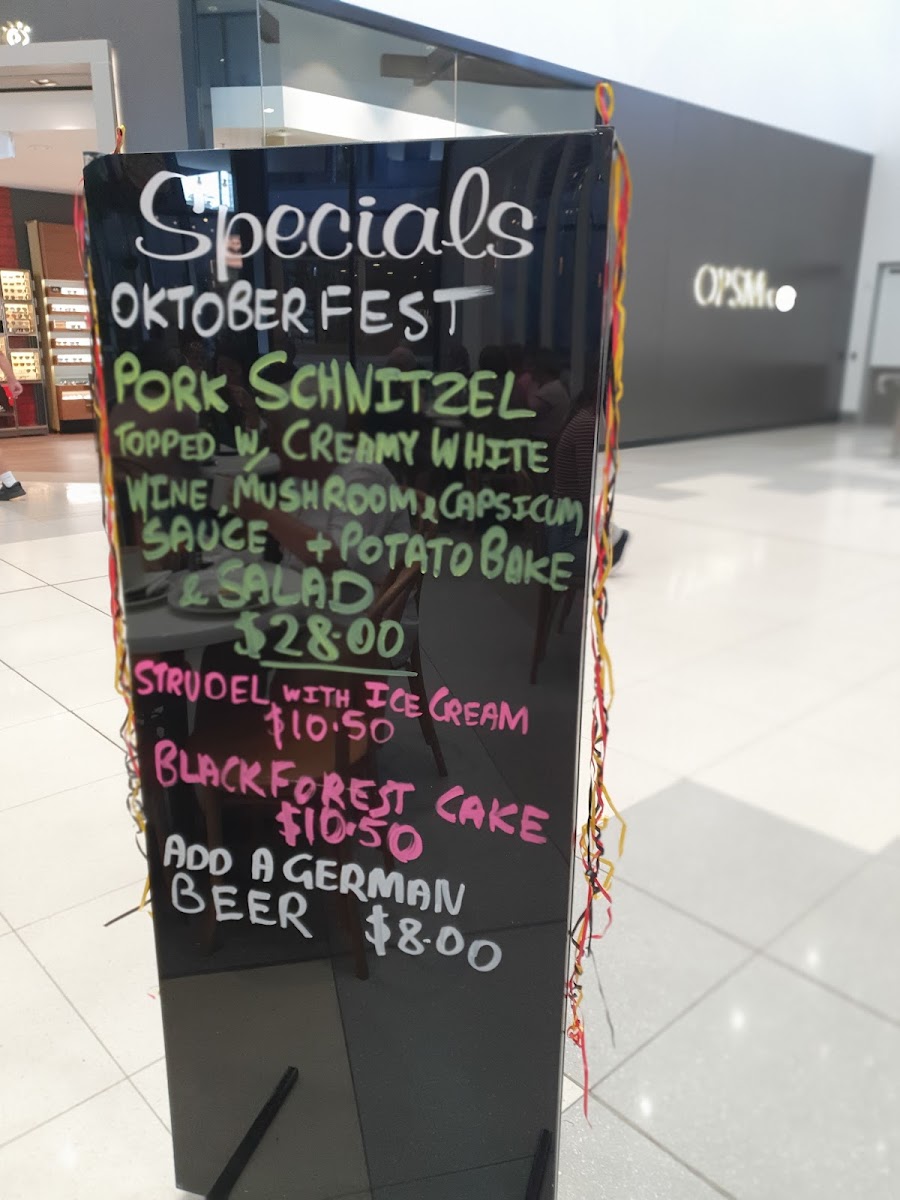 Specials
OKTOBERFEST
PORK SCHNITZEL
TOPPED W, CREAMY WHITE
WINE, MUSHROOM, CAPSICUM
SAUCE + POTATO BAKE
& SALAD
$28.00
STRUDEL WITH ICE CREAM
$10.50
BLACKFOREST CAKE
$10.50
ADD A GERMAN
BEER $8.00
OPSM